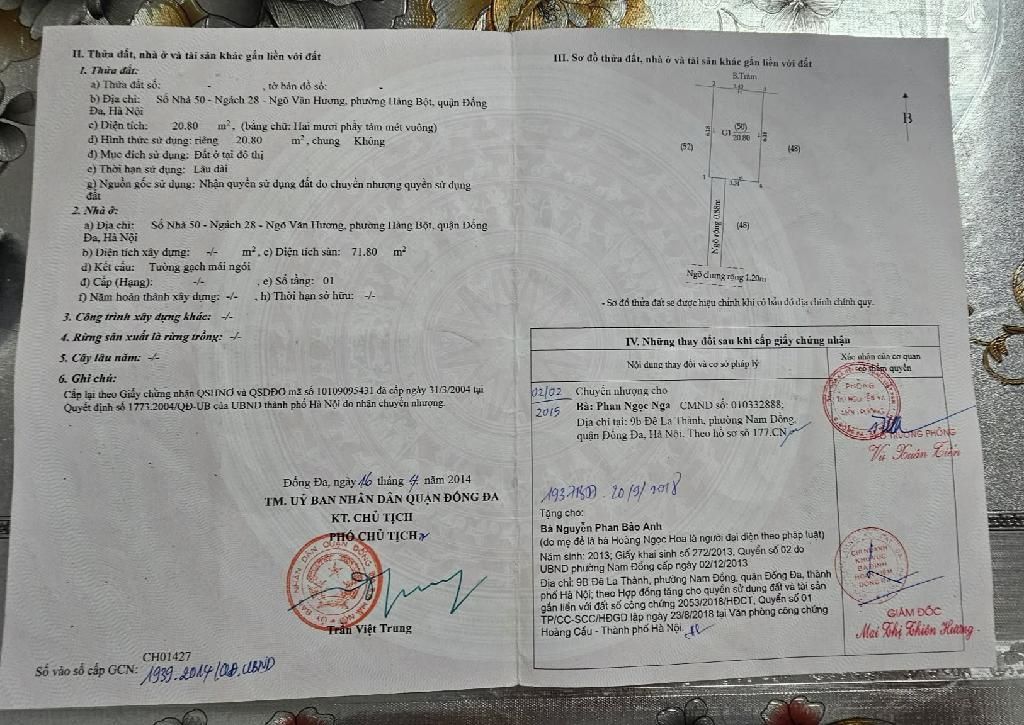 II. Thửa đất, nhà ở và tài sản khác gắn liền với đất
1. Thửa đất:
a) Thửa đất số: - , tờ bản đồ số: -
b) Địa chỉ: Số Nhà 50 - Ngách 28 - Ngõ Văn Hương, phường Hàng Bột, quận Đống
Đa, Hà Nội
c) Diện tích: 20.80 m², (bằng chữ: Hai mươi phẩy tám mét vuông)
d) Hình thức sử dụng: riêng 20.80 m², chung Không
đ) Mục đích sử dụng: Đất ở tại đô thị
e) Thời hạn sử dụng: Lâu dài
g) Nguồn gốc sử dụng: Nhận quyền sử dụng đất do chuyển nhượng quyền sử dụng
đất
2. Nhà ở:
a) Địa chỉ: Số Nhà 50 - Ngách 28 - Ngõ Văn Hương, phường Hàng Bột, quận Đống
Đa, Hà Nội
b) Diện tích xây dựng: -/- m², c) Diện tích sàn: 71.80 m²
d) Kết cấu: Tường gạch mái ngói
đ) Cấp (Hạng): -/- , e) Số tầng: 01
f) Năm hoàn thành xây dựng: -/- , h) Thời hạn sở hữu: -/-
3. Công trình xây dựng khác: -/-
4. Rừng sản xuất là rừng trồng: -/-
5. Cây lâu năm: -/-
6. Ghi chú:
Cấp lại theo Giấy chứng nhận QSHNƠ và QSDĐƠ mã số 10109095431 đã cấp ngày 31/3/2004 tại
Quyết định số 1773.2004/QĐ-UB của UBND thành phố Hà Nội do nhận chuyển nhượng.
Đống Đa, ngày 16 tháng 4 năm 2014
TM. UỶ BAN NHÂN DÂN QUẬN ĐỐNG ĐA
KT. CHỦ TỊCH
PHÓ CHỦ TỊCH
Trần Việt Trung
CH01427
Số vào sổ cấp GCN: 1939-2014/QĐ.UBND
III. Sơ đồ thửa đất, nhà ở và tài sản khác gắn liền với đất
B.Trâm
2
3
B
(50)
G1 20.80
(52)
(48)
1
4
(48)
Ngõ rộng 0.58m
Ngõ chung rộng 1.20m
- Sơ đồ thửa đất sẽ được hiệu chỉnh khi có bản đồ địa chính chính quy.
IV. Những thay đổi sau khi cấp giấy chứng nhận
Nội dung thay đổi và cơ sở pháp lý
Xác nhận của cơ quan
có thẩm quyền
02/02
2015
Chuyển nhượng cho
Bà: Phan Ngọc Nga CMND số: 010332888;
Địa chỉ tại: 9b Đê La Thành, phường Nam Đồng,
quận Đống Đa, Hà Nội. Theo hồ sơ số 177.CN
PHÓ TRƯỞNG PHÒNG
Vũ Xuân Tiến
20/9/2018
Tặng cho:
Bà Nguyễn Phan Bảo Anh
(do mẹ đẻ là bà Hoàng Ngọc Hoa là người đại diện theo pháp luật)
Năm sinh: 2013; Giấy khai sinh số 272/2013, Quyển số 02 do
UBND phường Nam Đồng cấp ngày 02/12/2013
Địa chỉ: 9B Đê La Thành, phường Nam Đồng, quận Đống Đa, thành
phố Hà Nội; theo Hợp đồng tặng cho quyền sử dụng đất và tài sản
gắn liền với đất số công chứng 2053/2018/HĐCT, Quyển số 01
TP/CC-SCC/HĐGD lập ngày 23/8/2018 tại Văn phòng công chứng
Hoàng Cầu - Thành phố Hà Nội.
GIÁM ĐỐC
Mai Thị Thiên Hương